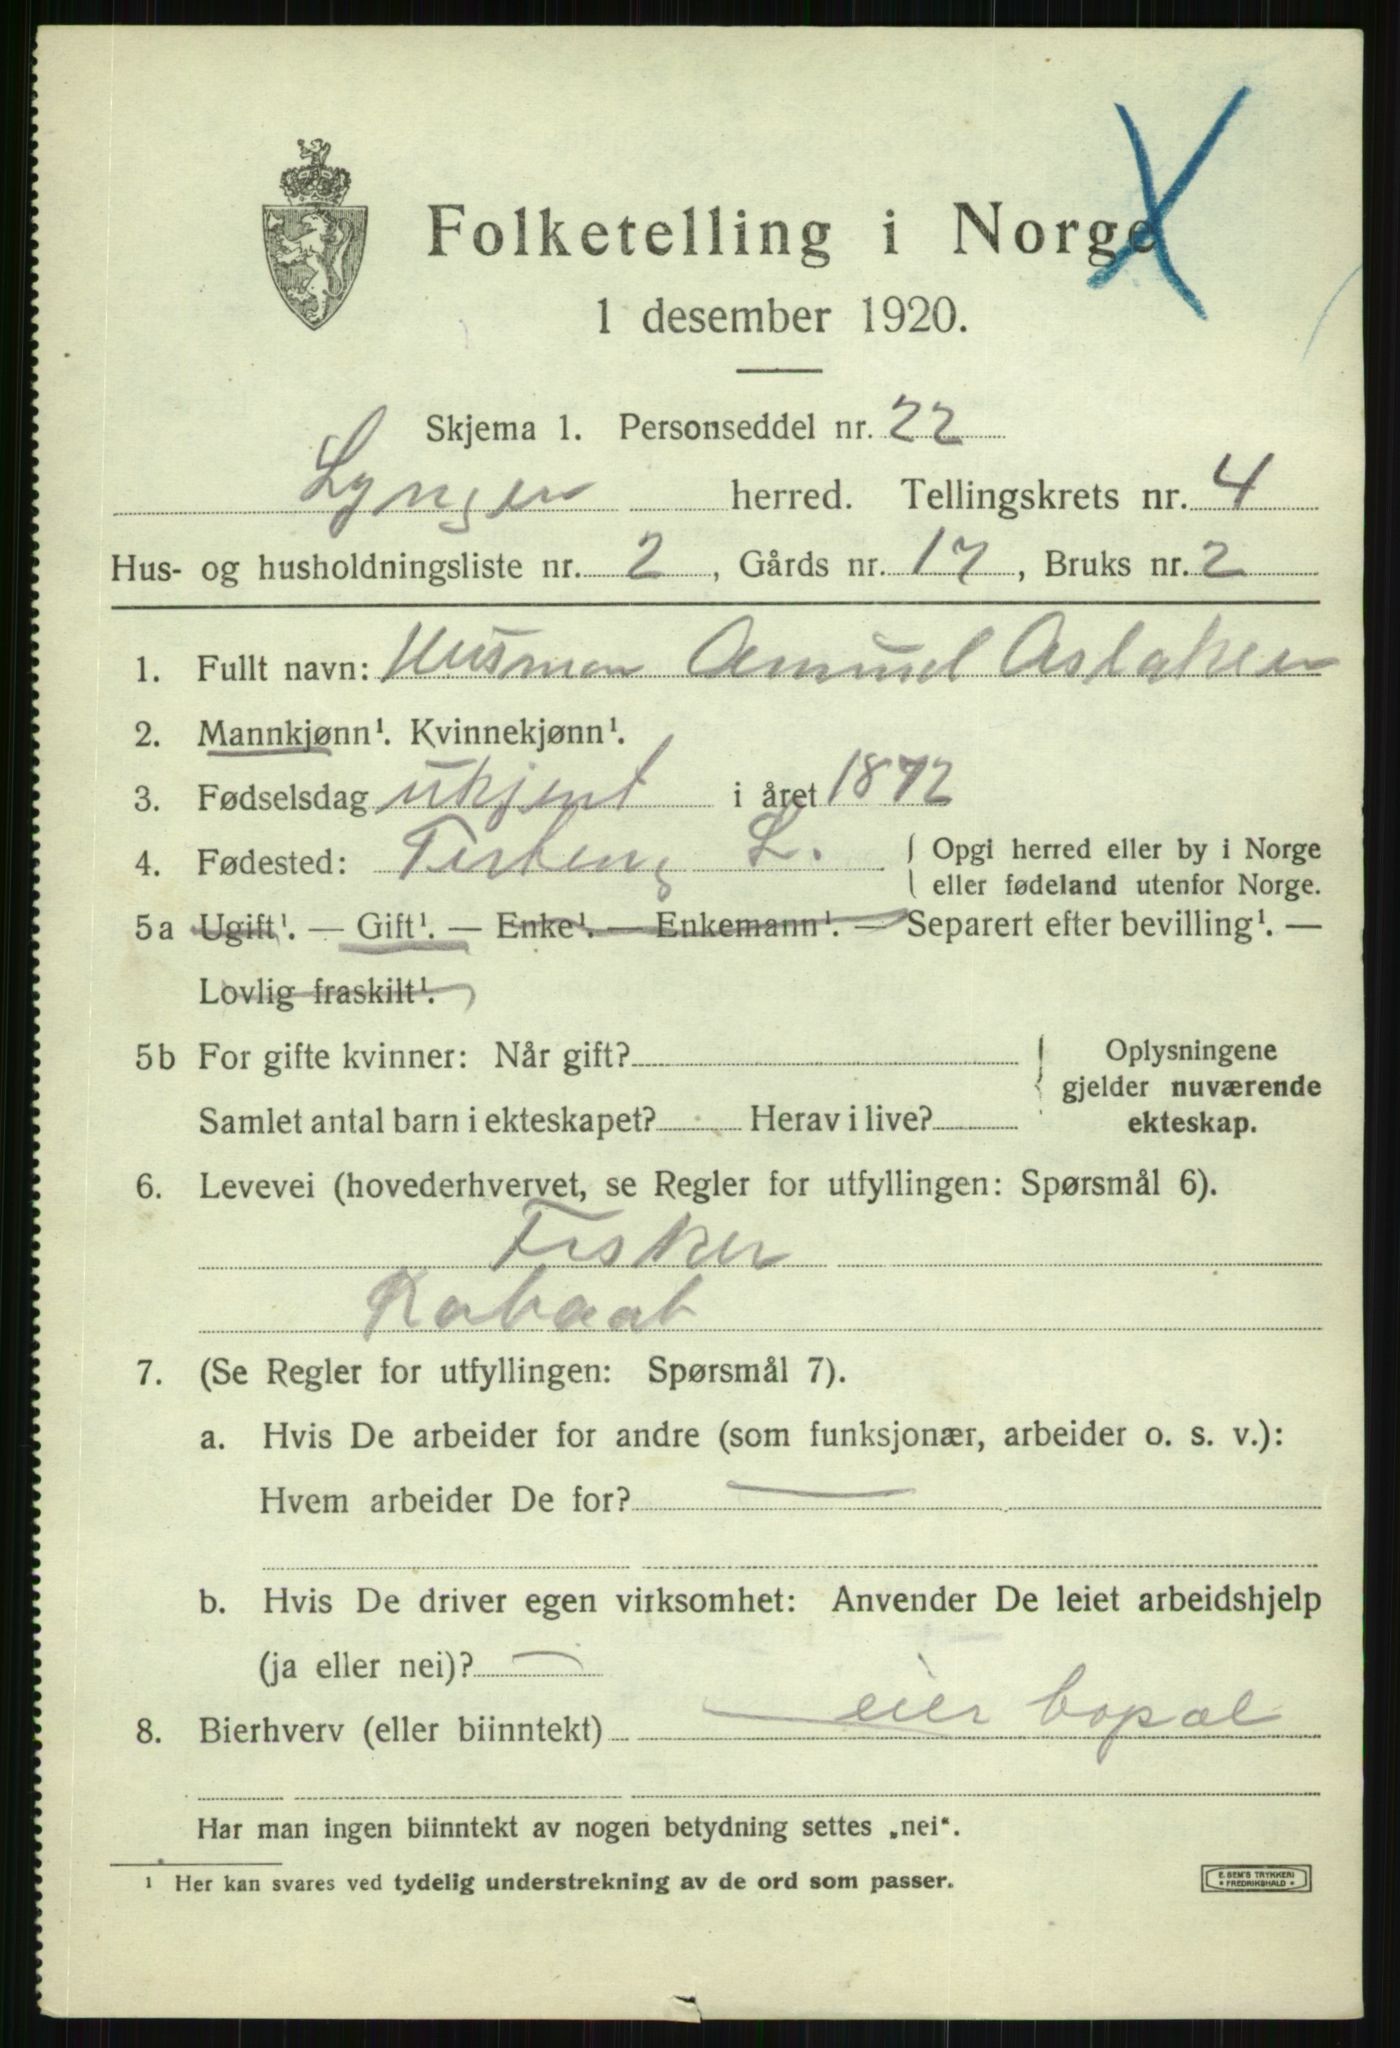 Folketelling i Norge
1 desember 1920.
Skjema 1. Personseddel nr. 22
Lyngen herred. Tellingskrets nr. 4
Hus- og husholdningsliste nr. 2, Gårds nr. 17, Bruks nr. 2
1. Fullt navn: Husman Amund Aslaksen
2. Mannkjønn¹. Kvinnekjønn¹.
3. Fødselsdag ukjent i året 1872
4. Fødested: L. Opgi herred eller by i Norge
eller fødeland utenfor Norge.
5a Ugift¹. — Gift¹. — Enke¹. — Enkemann¹. — Separert efter bevilling¹. —
Lovlig fraskilt¹.
5b For gifte kvinner: Når gift? Oplysningene
gjelder nuværende
Samlet antal barn i ekteskapet? Herav i live? ekteskap.
6. Levevei (hovederhvervet, se Regler for utfyllingen: Spørsmål 6).
Fisker
7. (Se Regler for utfyllingen: Spørsmål 7).
a. Hvis De arbeider for andre (som funksjonær, arbeider o. s. v.):
Hvem arbeider De for? —
b. Hvis De driver egen virksomhet: Anvender De leiet arbeidshjelp
(ja eller nei)? —
8. Bierhverv (eller biinntekt) — eier bopæl
Har man ingen biinntekt av nogen betydning settes „nei“.
¹ Her kan svares ved tydelig understrekning av de ord som passer.
E. SEM'S TRYKKERI
* FREDRIKSHALD *